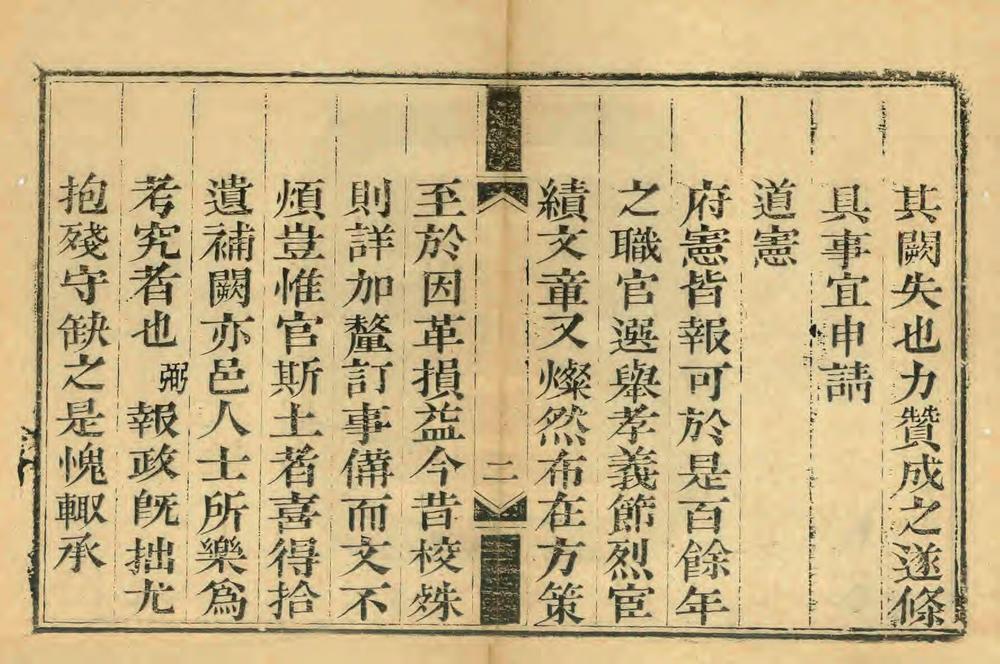 其闕失也力贊成之遂條
具事宜申請
道憲
府憲皆報可於是百餘年
之職官選舉孝義節烈宦
績文章又燦然布在方策
二
至於因革損益今昔校殊
則詳加釐訂事備而文不
煩豈惟官斯土者喜得拾
遺補闕亦邑人士所樂爲
考究者也弼報政旣拙尤
抱殘守缺之是愧輙承